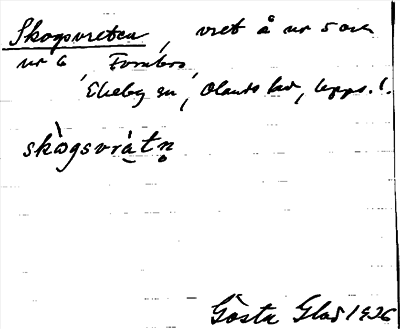 Skogsvreten, vret å nr 5 och
nr 6 Fornbro,
Ekeby sn, Olands hd, Upps. l.
skògsvrà̠tn̥
Gösta Glas 1926